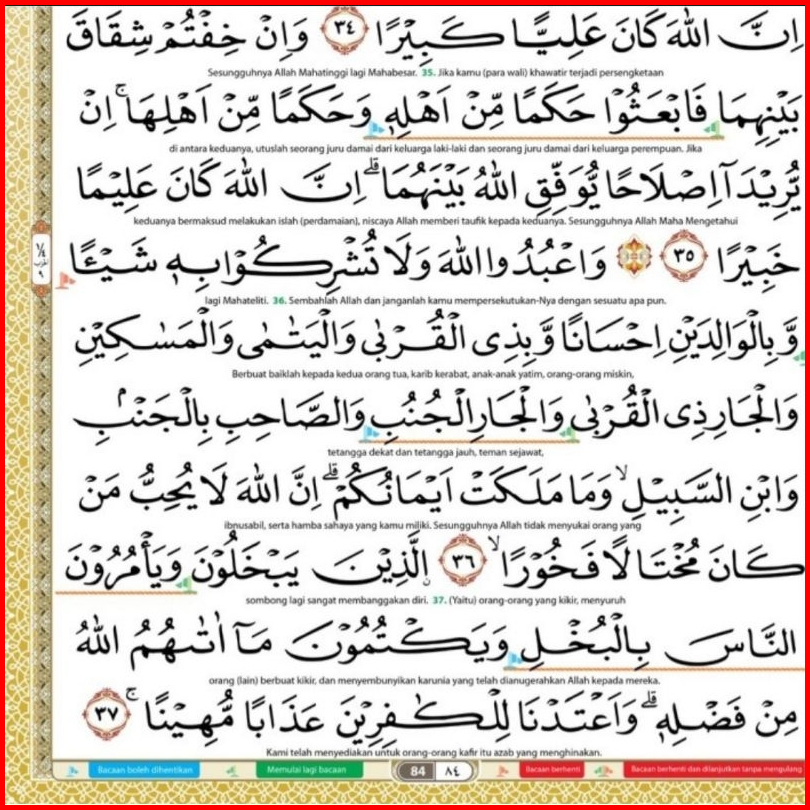 اِنَّ اللّٰهَ كَانَ عَلِيًّا كَبِيْرًا ٣٤ وَاِنْ خِفْتُمْ شِقَاقَ
Sesungguhnya Allah Mahatinggi lagi Mahabesar. 35. Jika kamu (para wali) khawatir terjadi persengketaan
بَيْنِهِمَا فَابْعَثُوْا حَكَمًا مِّنْ اَهْلِهٖ وَحَكَمًا مِّنْ اَهْلِهَاۚ اِنْ
di antara keduanya, utuslah seorang juru damai dari keluarga laki-laki dan seorang juru damai dari keluarga perempuan. Jika
يُّرِيْدَآ اِصْلَاحًا يُّوَفِّقِ اللّٰهُ بَيْنَهُمَاۗ اِنَّ اللّٰهَ كَانَ عَلِيْمًا
keduanya bermaksud melakukan islah (perdamaian), niscaya Allah memberi taufik kepada keduanya. Sesungguhnya Allah Maha Mengetahui
خَبِيْرًا ٣٥ ۞ وَاعْبُدُوا اللّٰهَ وَلَا تُشْرِكُوْا بِهٖ شَيْـًٔا
lagi Mahateliti. 36. Sembahlah Allah dan janganlah kamu mempersekutukan-Nya dengan sesuatu apa pun.
وَّبِالْوَالِدَيْنِ اِحْسَانًا وَّبِذِى الْقُرْبٰى وَالْيَتٰمٰى وَالْمَسٰكِيْنِ
Berbuat baiklah kepada kedua orang tua, karib kerabat, anak-anak yatim, orang-orang miskin,
وَالْجَارِ ذِى الْقُرْبٰى وَالْجَارِ الْجُنُبِ وَالصَّاحِبِ بِالْجَنْۢبِ
tetangga dekat dan tetangga jauh, teman sejawat,
وَابْنِ السَّبِيْلِۙ وَمَا مَلَكَتْ اَيْمَانُكُمْۗ اِنَّ اللّٰهَ لَا يُحِبُّ مَنْ
ibnusabil, serta hamba sahaya yang kamu miliki. Sesungguhnya Allah tidak menyukai orang yang
كَانَ مُخْتَالًا فَخُوْرًاۙ ٣٦ ۨالَّذِيْنَ يَبْخَلُوْنَ وَيَأْمُرُوْنَ
sombong lagi sangat membanggakan diri. 37. (Yaitu) orang-orang yang kikir, menyuruh
النَّاسَ بِالْبُخْلِ وَيَكْتُمُوْنَ مَآ اٰتٰىهُمُ اللّٰهُ
orang (lain) berbuat kikir, dan menyembunyikan karunia yang telah dianugerahkan Allah kepada mereka.
مِنْ فَضْلِهٖۗ وَاَعْتَدْنَا لِلْكٰفِرِيْنَ عَذَابًا مُّهِيْنًاۚ ٣٧
Kami telah menyediakan untuk orang-orang kafir itu azab yang menghinakan.
Bacaan boleh dihentikan Memulai lagi bacaan 84 ٨٤ Bacaan berhenti Bacaan berhenti dan dilanjutkan tanpa mengulang